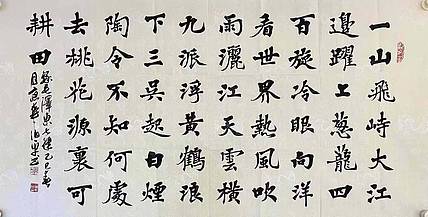 一山飛峙大江
邊躍上葱龍四
百旋冷眼向洋
看世界熱風吹
雨灑江天雲橫
九派浮黄鶴浪
下三吳起白煙
陶令不知何處
去桃花源裏可
耕田
毛澤東七律乙巳